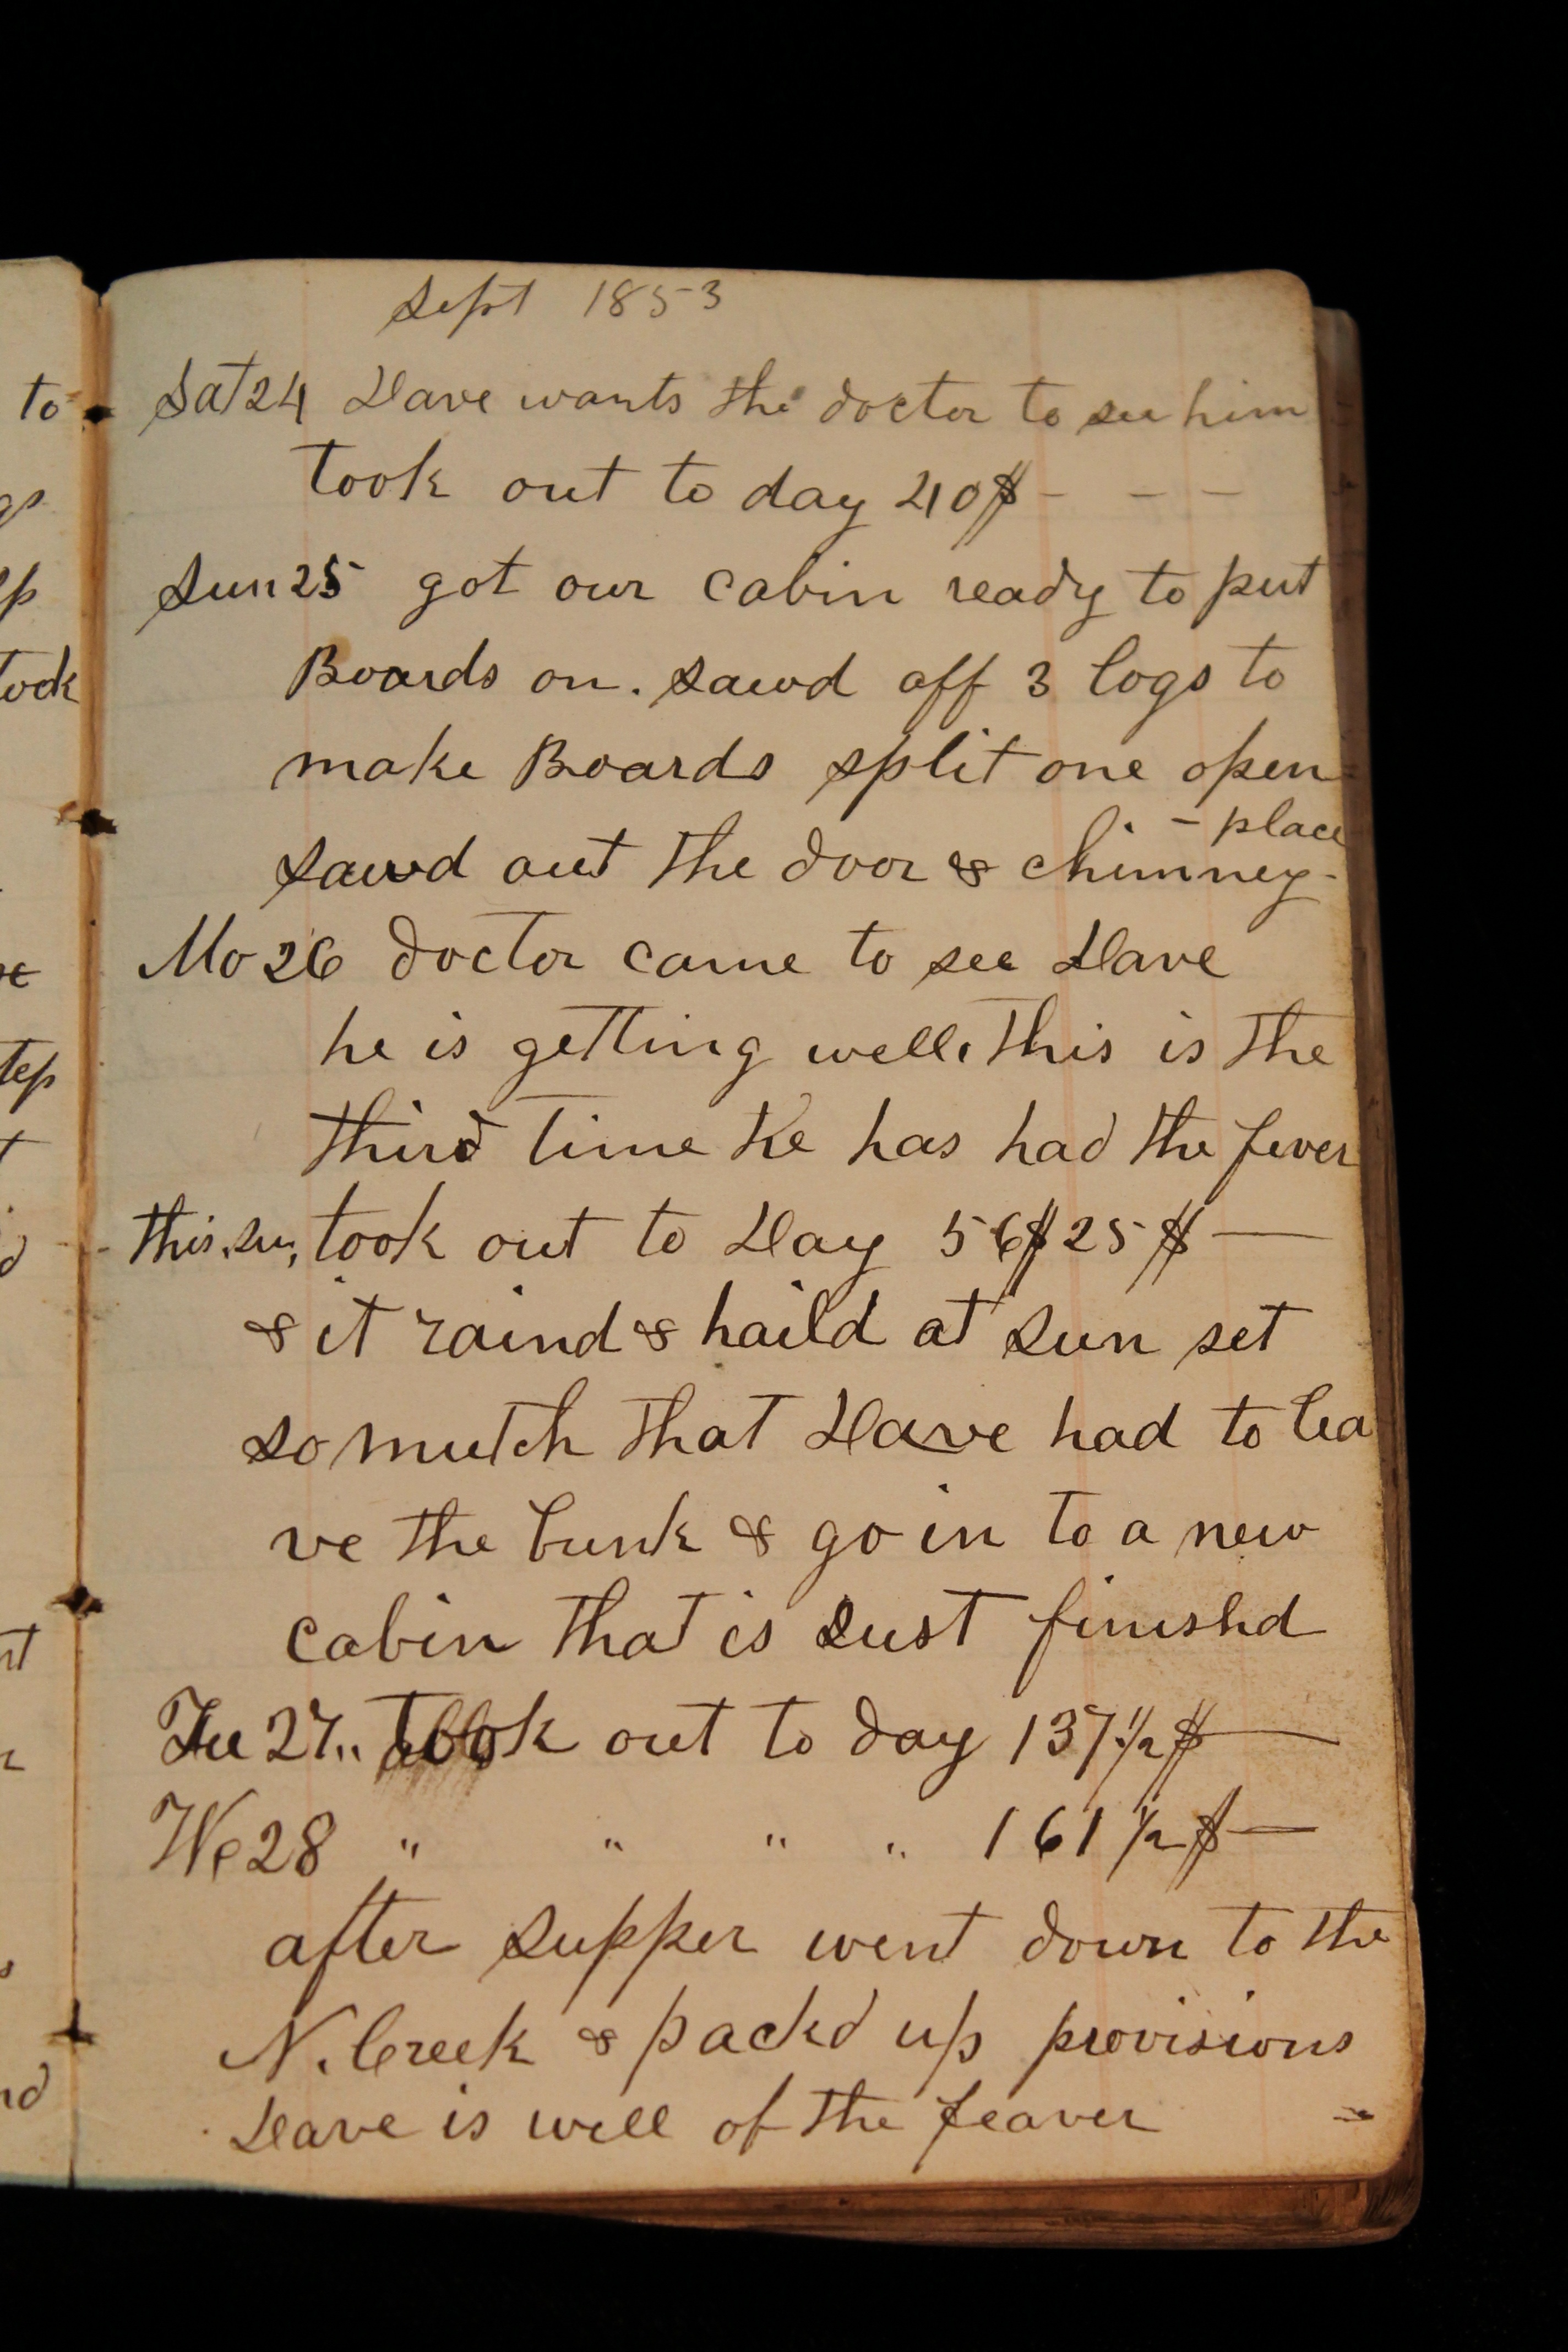 Sept 1853
Sat 24 Dave wants the doctor to see him
took out to day 40$ - - -
Sun 25 got our cabin ready to put
Boards on. sawd off 3 logs to
make Boards split one open
- place
sawd out the door & chimney-
Mo 26 doctor came to see Dave
he is getting well. this is the
third time he has had the fever
this. su, took out to Day 56$ 25$ —
& it raind & haild at sun set
so mutch that Dave had to lea
ve the bunk & go in to a new
cabin that is Just finishd
Tu 27.. took out to day 137 1/2 $ —
We 28 " " " " 161 1/2 $ —
after supper went down to the
N. Creek & packd up provisions
Dave is well of the feaver -
to
gs
took
tep